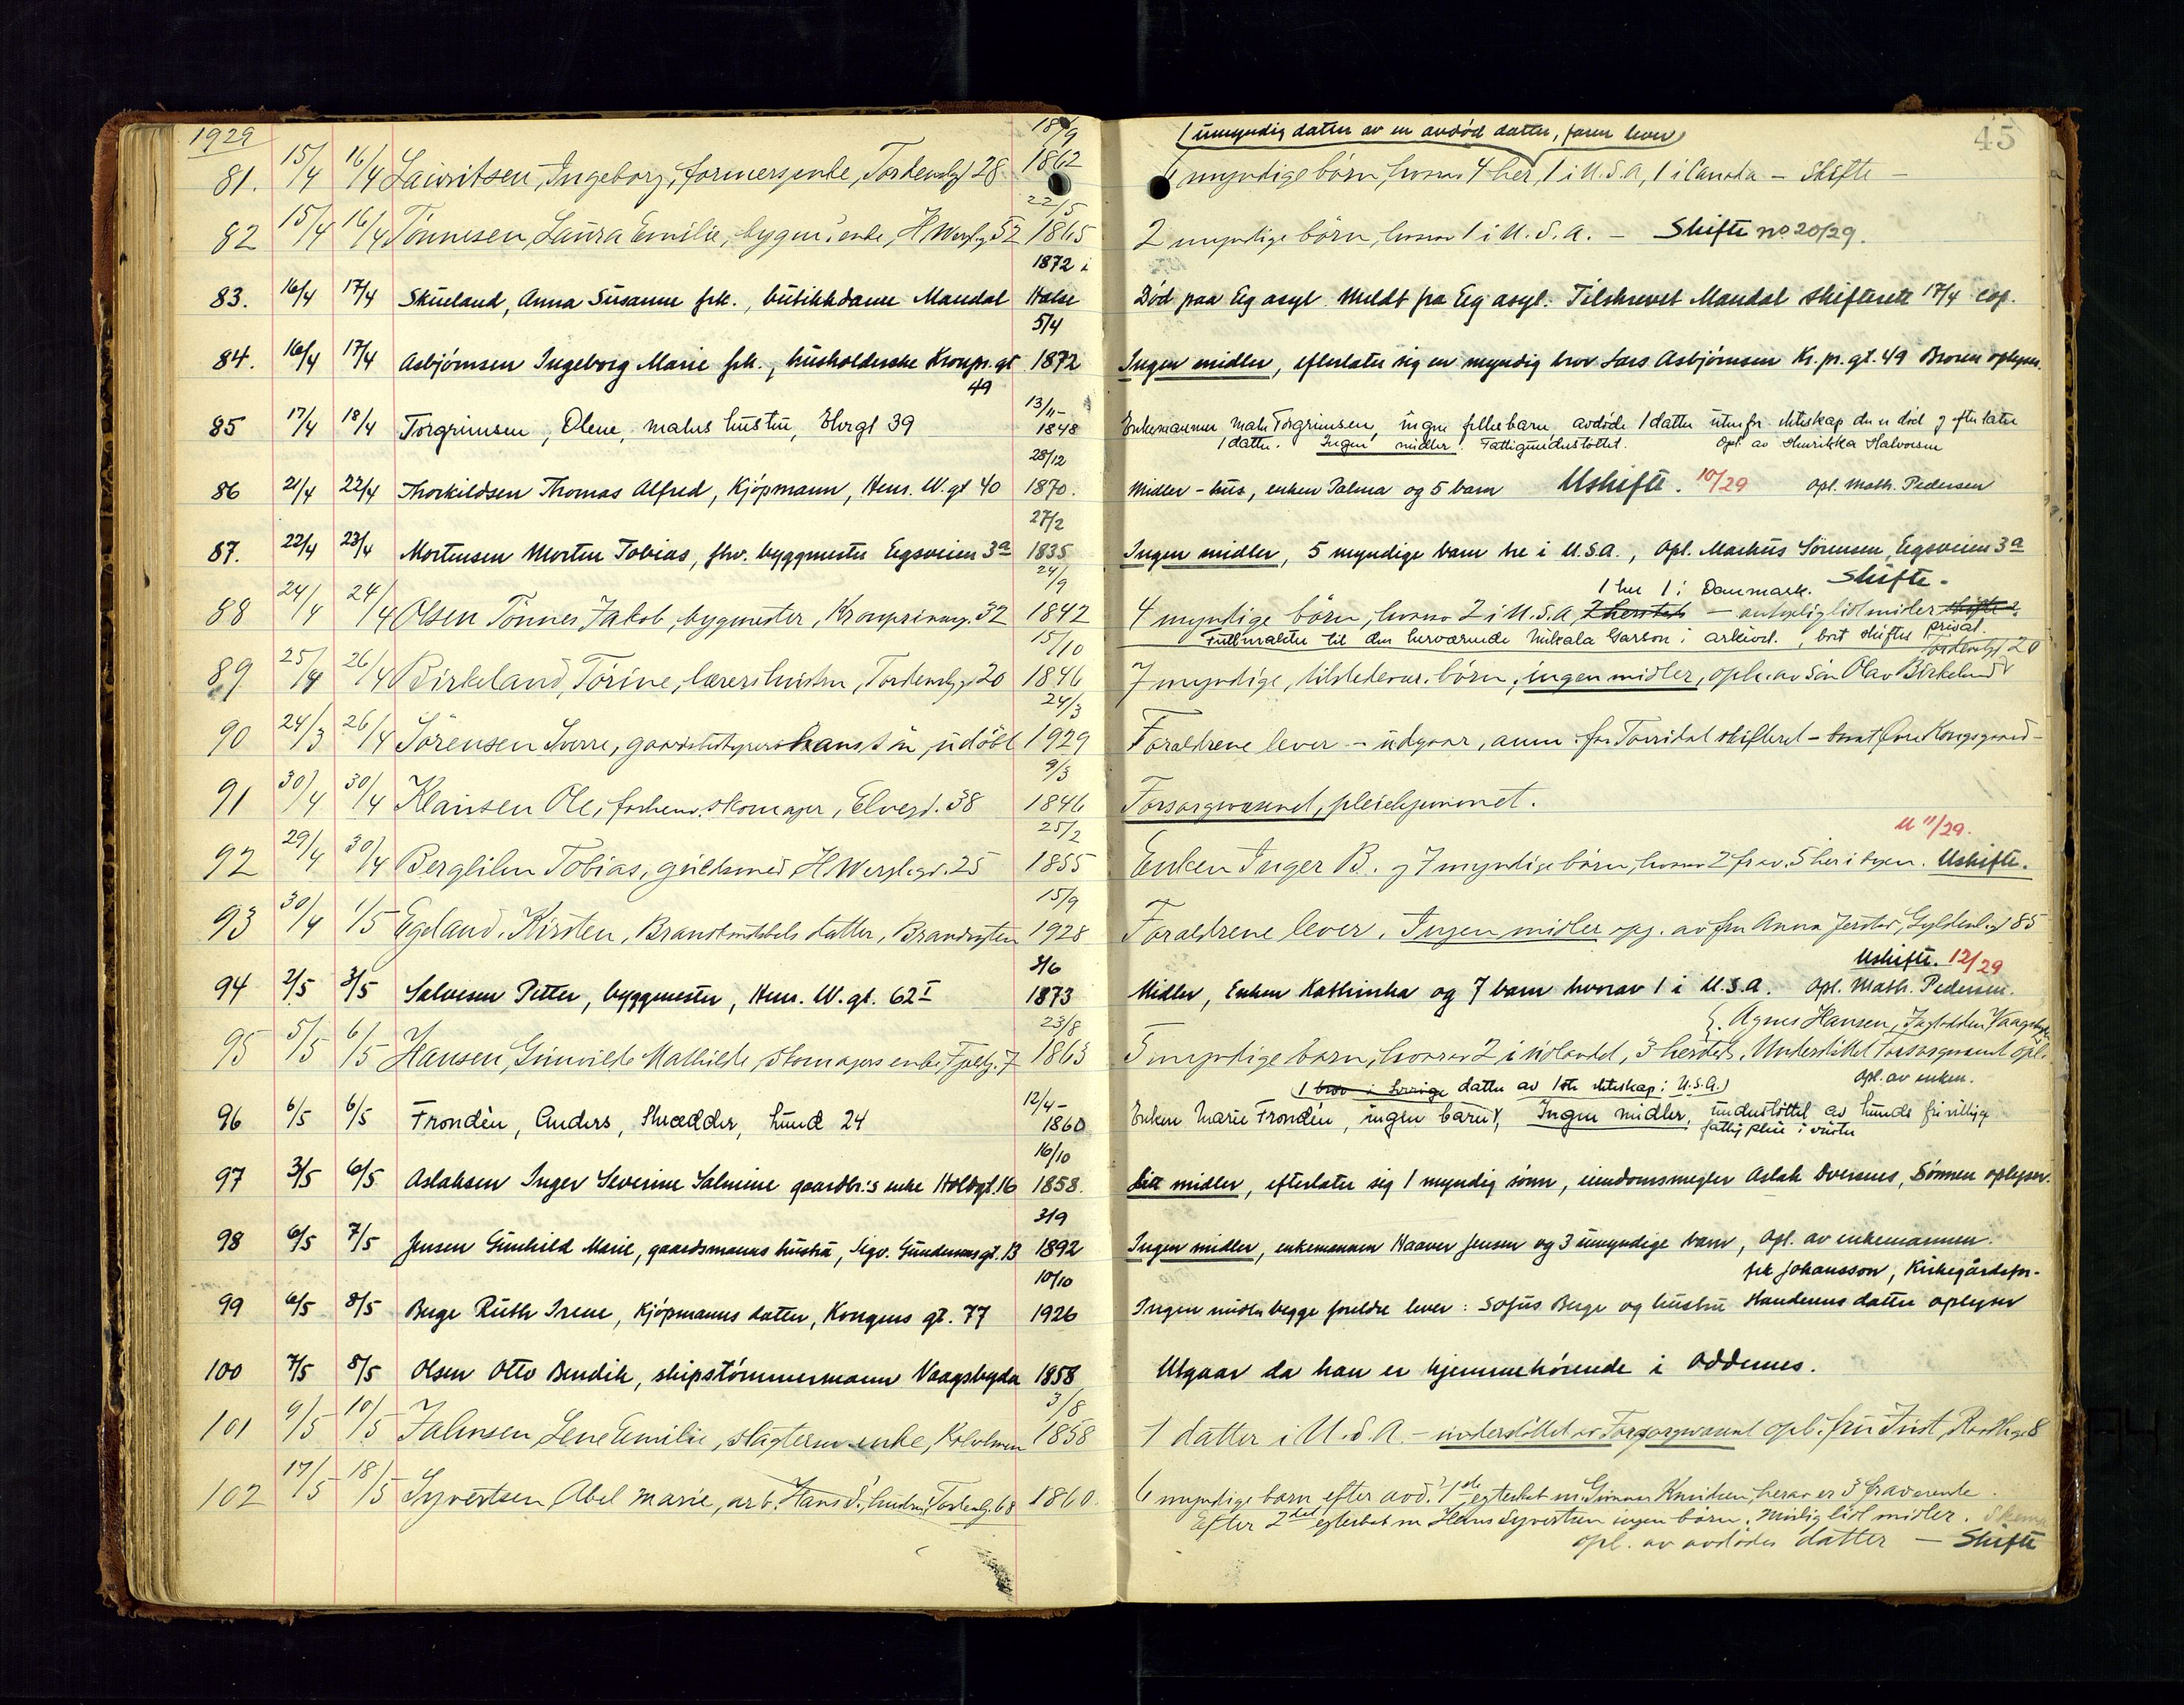 1929
45
18/9
(1 umyndig datter av en avdöd datter, faren lever)
81. 15/4 16/4 Lauritsen, Ingeborg, formersenke, Tordenskj 28 1862 6 myndige börn, hvorav 4 her, 1 i U.S.A, 1 i Canada – Skifte –
22/5
82 15/4 16/4 Tönnesen, Laura Emilie, bygm. enke, H Wergl.g 52 1865 2 myndige börn, hvorav 1 i U.S.A. – Skifte no 20/29.
1872 i
83. 16/4 17/4 Skueland, Anna Susanne frk., butikkdame Mandal Halse Död paa Eg asyl. Meldt fra Eg asyl. Tilskrevet Mandal skifterett 17/4 cop.
5/4
84. 16/4 17/4 Asbjørnsen Ingeborg Marie frk., husholderske Kronpr.gt 1872 Ingen midler, efterlater sig en myndig bror Lars Asbjørnsen Kr.pr.gt. 49 Broren oplyser.
49
13/11-
85 17/4 18/4 Torgrimsen, Olene, malers hustru, Elvegt 39 1848 Enkemannen maler Torgrimsen, ingen felles barn, avdøde 1 datter utenfor ekteskap den er död og efterlater
1 datter. Ingen midler. Fattigunderstöttet. Opl. av Henrikka Halvorsen
28/12
86 21/4 22/4 Thorkildsen Thomas Alfred, Kjøpmann, Henr. W.gt 40 1870. Midler - hus, enken Palma og 5 barn Uskifte. 10/29 Opl. Math. Pedersen
27/2
87. 22/4 23/4 Mortensen Morten Tobias, fhv. byggmester Egsveien 3a 1835 Ingen midler, 5 myndige barn tre i U.S.A., Opl. Markus Sörensen, Egsveien 3a
24/9
1 her 1 i Danmark. Skifte -
88 24/4 24/4 Olsen Tönnes Jakob, bygmester, Kronprinsensg. 32 1842 4 myndige börn, hvorav 2 i U.S.A, 2 hersteds – antagelig litt midler skifte
Fullmakter til den herværende Mikala Garson i arkivet, bort skiftes privat.
15/10
Tordenskj 20
89 25/4 26/4 Birkeland, Torine, lærers hustru, Tordenskj 20 1846 7 myndige, tilstedevær. börn, ingen midler, opl. av sön Olav Birkeland
24/3
90 24/3 26/4 Sörensen Sverre, gaardbestyrers sön, udöbt 1929 Foraldrene lever – utgaar, anm. fra Torridal skifteret – Kongsgaard –
9/3
91 30/4 30/4 Klausen Ole, forhenv. skomager, Elvegt. 38 1846 Forsorgsvæsenet, pleiehjemmet.
25/2
U 11/29.
92 29/4 30/4 Berglihn Tobias, guldsmed H Wergl.gt. 25 1855 Enken Inger B. og 7 myndige börn, hvorav 2 frav. 5 her i byen. Uskifte.
15/9
93 30/4 1/5 Egeland, Kirsten, Brandkonstabels datter, Brandvagten 1928 Foraldrene lever. Ingen midler opg. av fru Anna Jerstad, Gyldenl.gt 85
3/6
Uskifte. 12/29
94 2/5 3/5 Salvesen Petter, byggmester, Henr. W.gt. 62 I 1873 Midler, Enken Kathinka og 7 barn hvorav 1 i U.S.A. Opl. Math. Pedersen.
23/8
Agnes Hansen, Vaagsbygd
95 5/5 6/5 Hansen, Gunvilde Mathilde, skomagers enke, 1863 5 myndige barn, hvorav 2 i utlandet, 3 hersteds. Understöttet Forsorgsvæsenet opl.
12/4-
1 bror i Sverige datter av 1ste ekteskap i U.S.A.) Opl. av enken.
96 6/5 6/5 Frondèn, Anders, Skrædder, Lund 24 1860 Enken Marie Frondèn, ingen barn, Ingen midler, understöttet av Lunds frivillige
fattigpleie i vinter
16/10
97 3/5 6/5 Aslaksen Inger Severine Salmine gaardbr:s enke Holbgt.16 1858. Litt midler, efterlater sig 1 myndig sönn, eiendomsmegler Aslak Dversnes, Sönnen oplyser.
3/9
98 6/5 7/5 Jensen Gunhild Marie, gaardsmanns hustru, Sigv. Gundersens gt. 13 1892 Ingen midler, enkemannen Haaver Jensen og 3 umyndige barn, Opl. av enkemannen.
10/10
frk Johansson, Kirkegårdsfor-
99 6/5 8/5 Berge Ruth Irene, Kjøpmanns datter, Kongens gt. 77 1926 Ingen midler begge foreldre lever: Sofus Berge og hustru datter oplyser
100 7/5 8/5 Olsen Otto Bendik, skipstömmermann Vaagsbygda 1858 Utgaar da han er hjemmehörende i Oddernes.
3/8
101 9/5 10/5 Jahnsen Lene Emilie, slagterm. enke, Kolholmen 1858 1 datter i U.S.A. – understöttet av Forsorgsvæsenet opl. fru Just, Raadhusg 8
102 17/5 18/5 Syvertsen, Abel Marie, arb. Hans S.s hustru, Tordenskj. 68 1860. 6 myndige barn efter avd.s 1ste egteskab m. Gunnar Knudsen, herav er 3 fraværende.
Efter 2det egteskab m Hans Syvertsen ingen börn. Muligens litt midler.
opl. av avdödes datter – Skifte